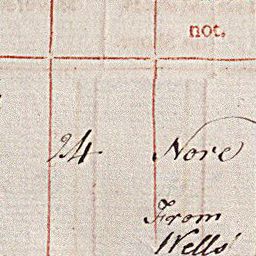 not.
24 Nore
From
Wells'